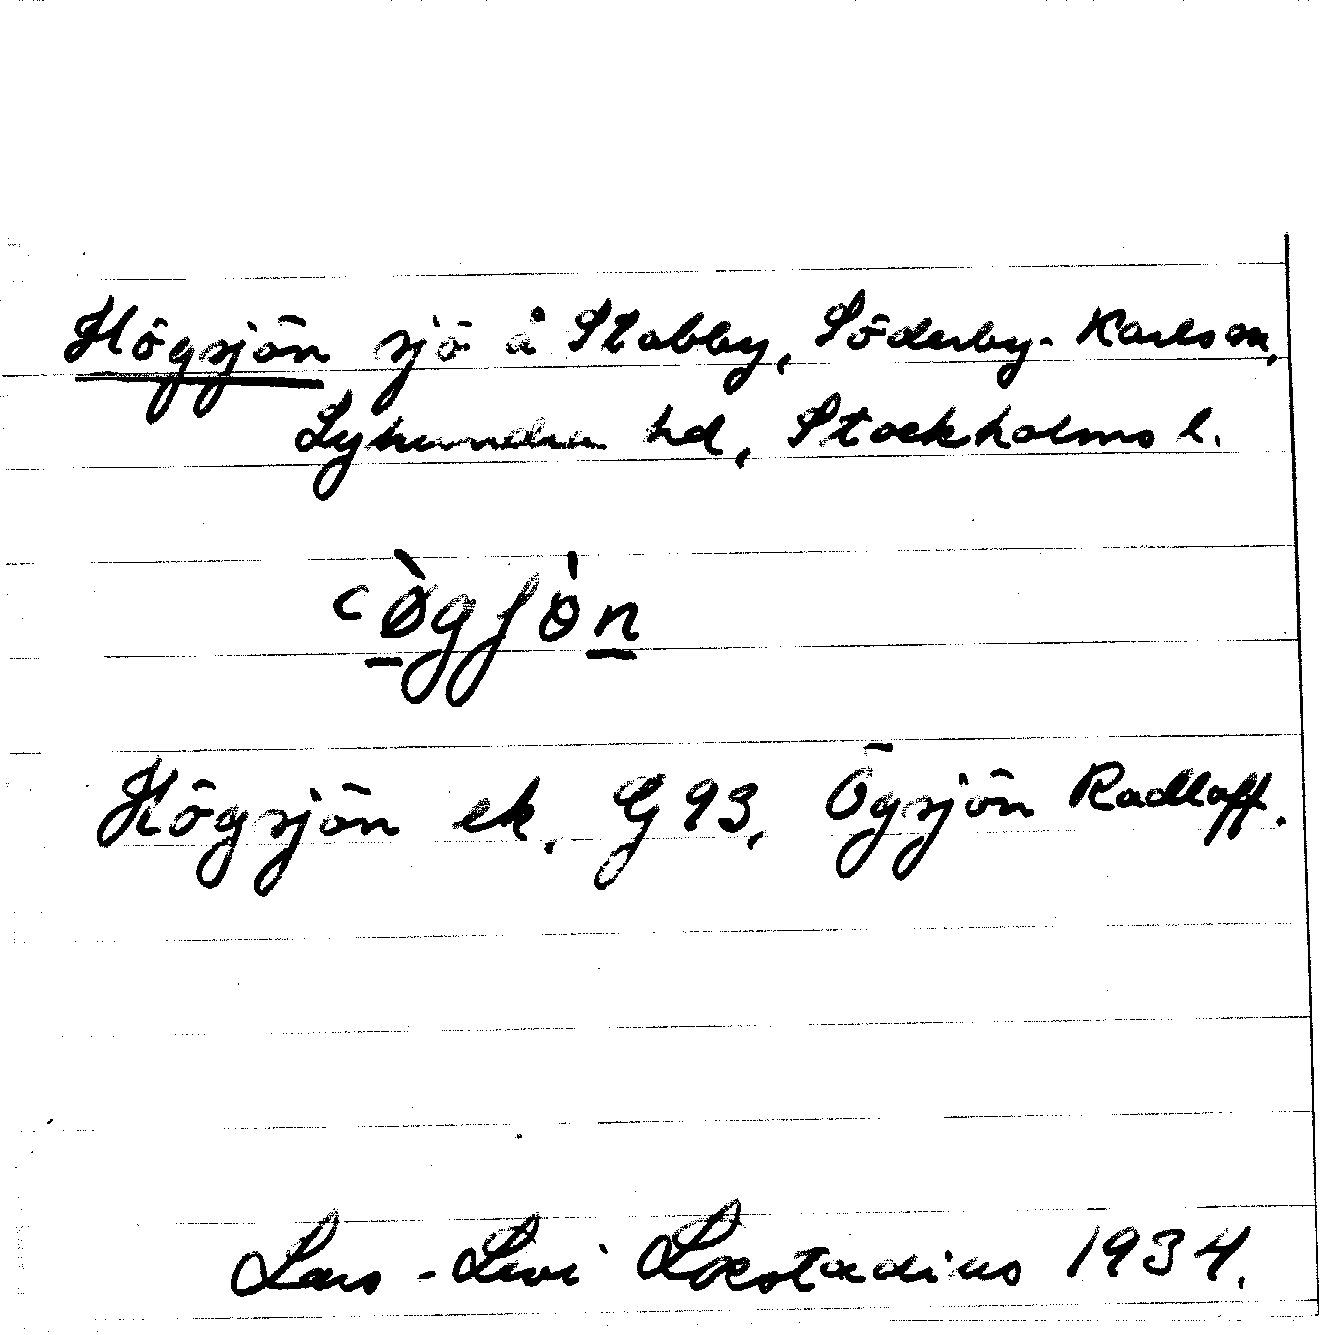 Högsjön sjö å Stabby, Söderby-Karls sn,
Lyhundra hd, Stockholms l.
Högsjön ek. G 93, Ögsjön Radloff.
Lars-Levi Læstadius 1934.